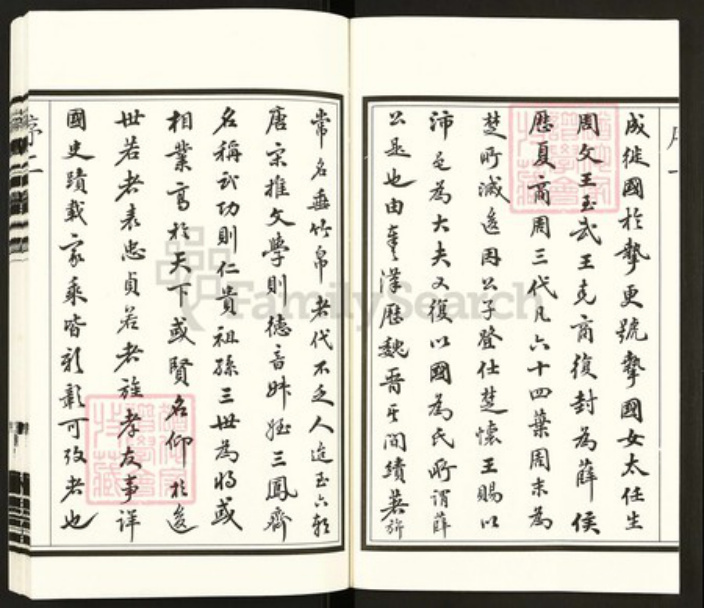 成徙國於摯更號摯國女太任生
周文王至武王克商復封為薛侯
歷夏商周三代凡六十四葉周末為
楚所滅遂因公子登仕楚懷王賜以
沛邑為大夫又復以國為氏所謂薛
公是也由秦漢歷魏晉其間績著旂
常名垂竹帛者代不乏人迨至六朝
唐宋推文學則德音姊姪三鳳齊
名稱武功則仁貴祖孫三世為將或
相業高於天下或賢名仰於後
世若者表忠貞若者旌孝友事詳
國史蹟載家乘皆彰彰可攷者也
序二
FamilySearch